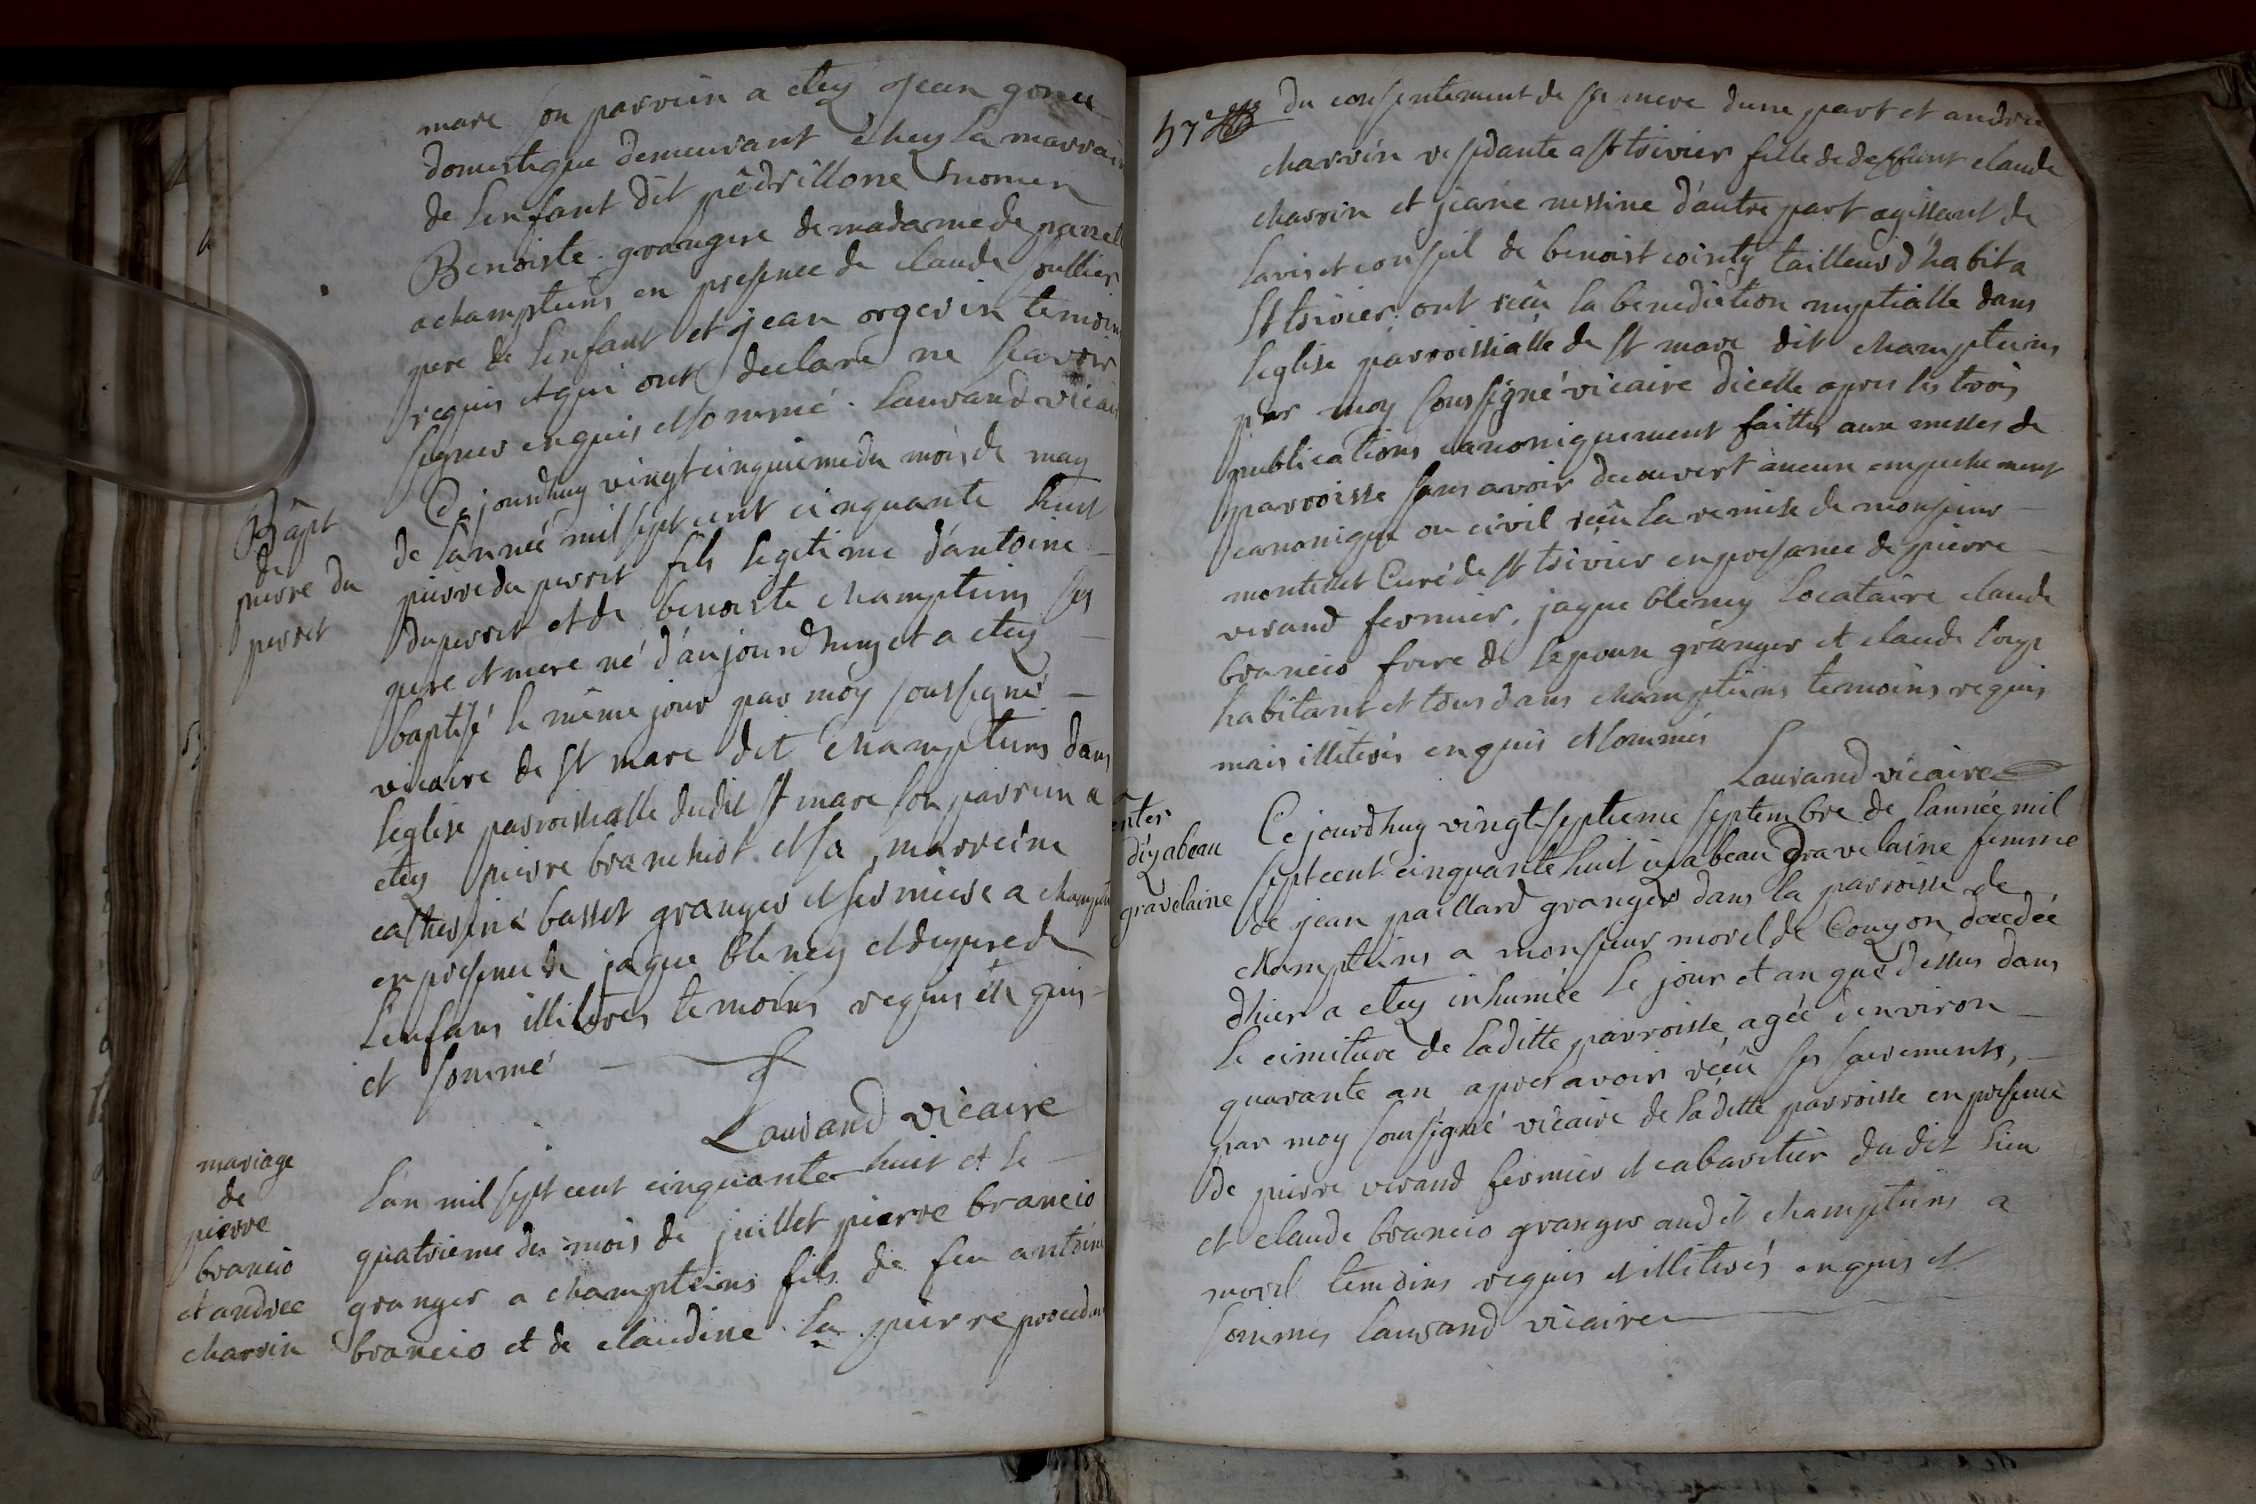 marc son parrein a etey jean
domestique demeurant chey la marrain
de lenfant dit pêdrillone nomen
Benoiste grangere de madame de
a chamteins en presence de claude
pere de lenfant et jean orgerin temoins
requis et qui ont declaré ne scavoir
signer enquis et sommé. Lausand vicair
Bâpt
de
pierre du
perret
Ce jourdhuy vingtcinquieme du mois de may
de lannée mil sept cent cinquante huit
pierre du perret fils legitime d'antoine
du perret et de benoiste champteins ses
pere et mere né d'aujourdhuy et a etey
baptisé le même jour par moy soussigné
vicaire de St marc dit champteins dans
leglise parroissialle dudit St marc son parrein a
etey pierre branchiot et sa marreine
catherine basset granger et fermiere a champte
en presence de jaque bleney et du pere de
lenfans illiteres temoins requis en quis
et sommé
Lausand vicaire
mariage
de
pierre
brancio
et andree
charvin
Lan mil sept cent cinquante huit et le
quatrieme du mois de juillet pierre brancio
granger a champteins fils de feu antoine
brancio et de claudine la pierre procedan
57
du consentement de sa mere dune part et andrée
charvin residante a St trivier fille de deffunt claude
charvin et jeane messine d'autre part agissant de
lavis et conseil de benoist cointy tailleur d'habit a
St trivier ont reçu la benediction nuptialle dans
leglise parroissialle de St marc dit champteins
par moy soussigné vicaire dicelle apres les trois
publications canoniquement faittes aux messes de
parroisse sans avoir decouvert aucun empechement
canonique ou civil reçu la remise de monsieur
montellet Curé de St trivier en presance de pierre
verand fermier, jaque bleney locataire claude
brancio frere de lepoux granger et claude loup
habitant et tous dans champteins temoins requis
mais illiterés enquis et sommés
Lausand vicaire
enter
dizabeau
gravelaine
Ce jourdhuy vingt septieme septembre de lannée mil
sept cent cinquante huit izabeau gravelaine femme
de jean paillard granger dans la parroisse de
champteins a monsieur morel de Couzon, decedée
dhier a etey inhumée le jour et an que dessus dans
le cimitiere de laditte parroisse, agée denviron
quarante an apres avoir reçu ses sacrements,
par moy soussigné vicaire de laditte parroisse en presence
de pierre verand fermier et cabaretier du dit lieu
et claude brancio granger au dit champteins a
morel temoins requis et illiterés enquis et
sommes Lausand vicaire